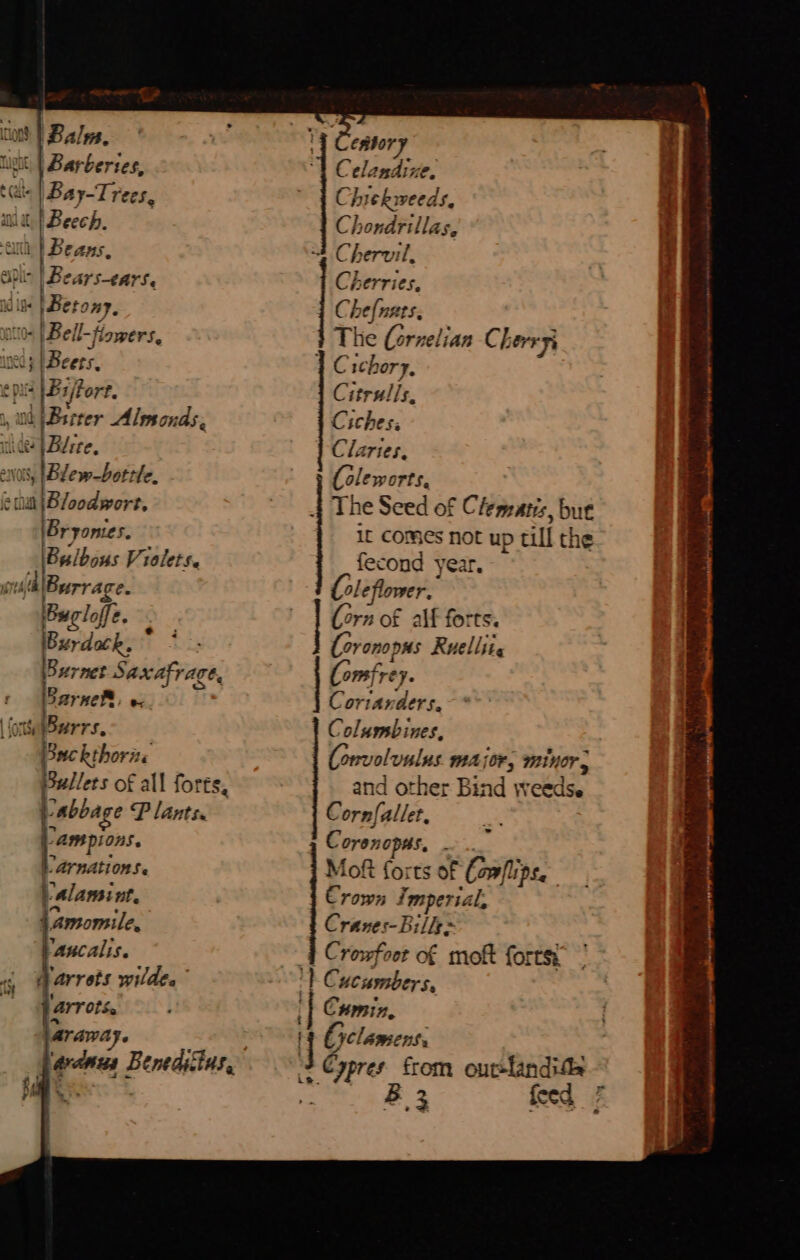 Balm.
Barberies,
Bay-Trees,
Beech.
Beans,
Bears-ears,
Betony.
Bell-flowers,
Beets,
Biſtort.
Bitter Almonds,
Blite.
Blew-bottle,
Bloodwort,
Bryonies.
Bulbous Violets.
Burrage.
Bugloſſe.
Burdock,
Burnet Saxafrage,
Burrs,
Buckthorn.
Bullets of all ſorts,
Cabbage Plants.
Campions.
Carnations.
Calamint.
Camomile,
Caucalis.
Carrots wilde.
Carrots.
Caraway.
Carduus Benedictus,
Centory
Celandine.
Chickweeds,
Chondrillas,
Chervil,
Cherries,
Cheſnuts,
The Cornelian Cherry;
Cichory,
Citrulls,
Ciches.
Claries,
Coleworts,
The Seed of Clematis, but
it comes not up till the
ſecond year,
Coleflower.
Corn of all ſorts.
Coronopus Ruellii,
Comfrey.
Corianders,
Columbines,
Convolvulus major, minor,
and other Bind weeds.
Cornſallet,
Coronopus,
Moſt ſorts of Cowſlips,
Crown Imperial,
Cranes-Bills
Crowfoot of moſt ſorts
Cucumbers,
Cumin,
Cyclamens,
Cypres from out-landiſh
B 3 ſeed